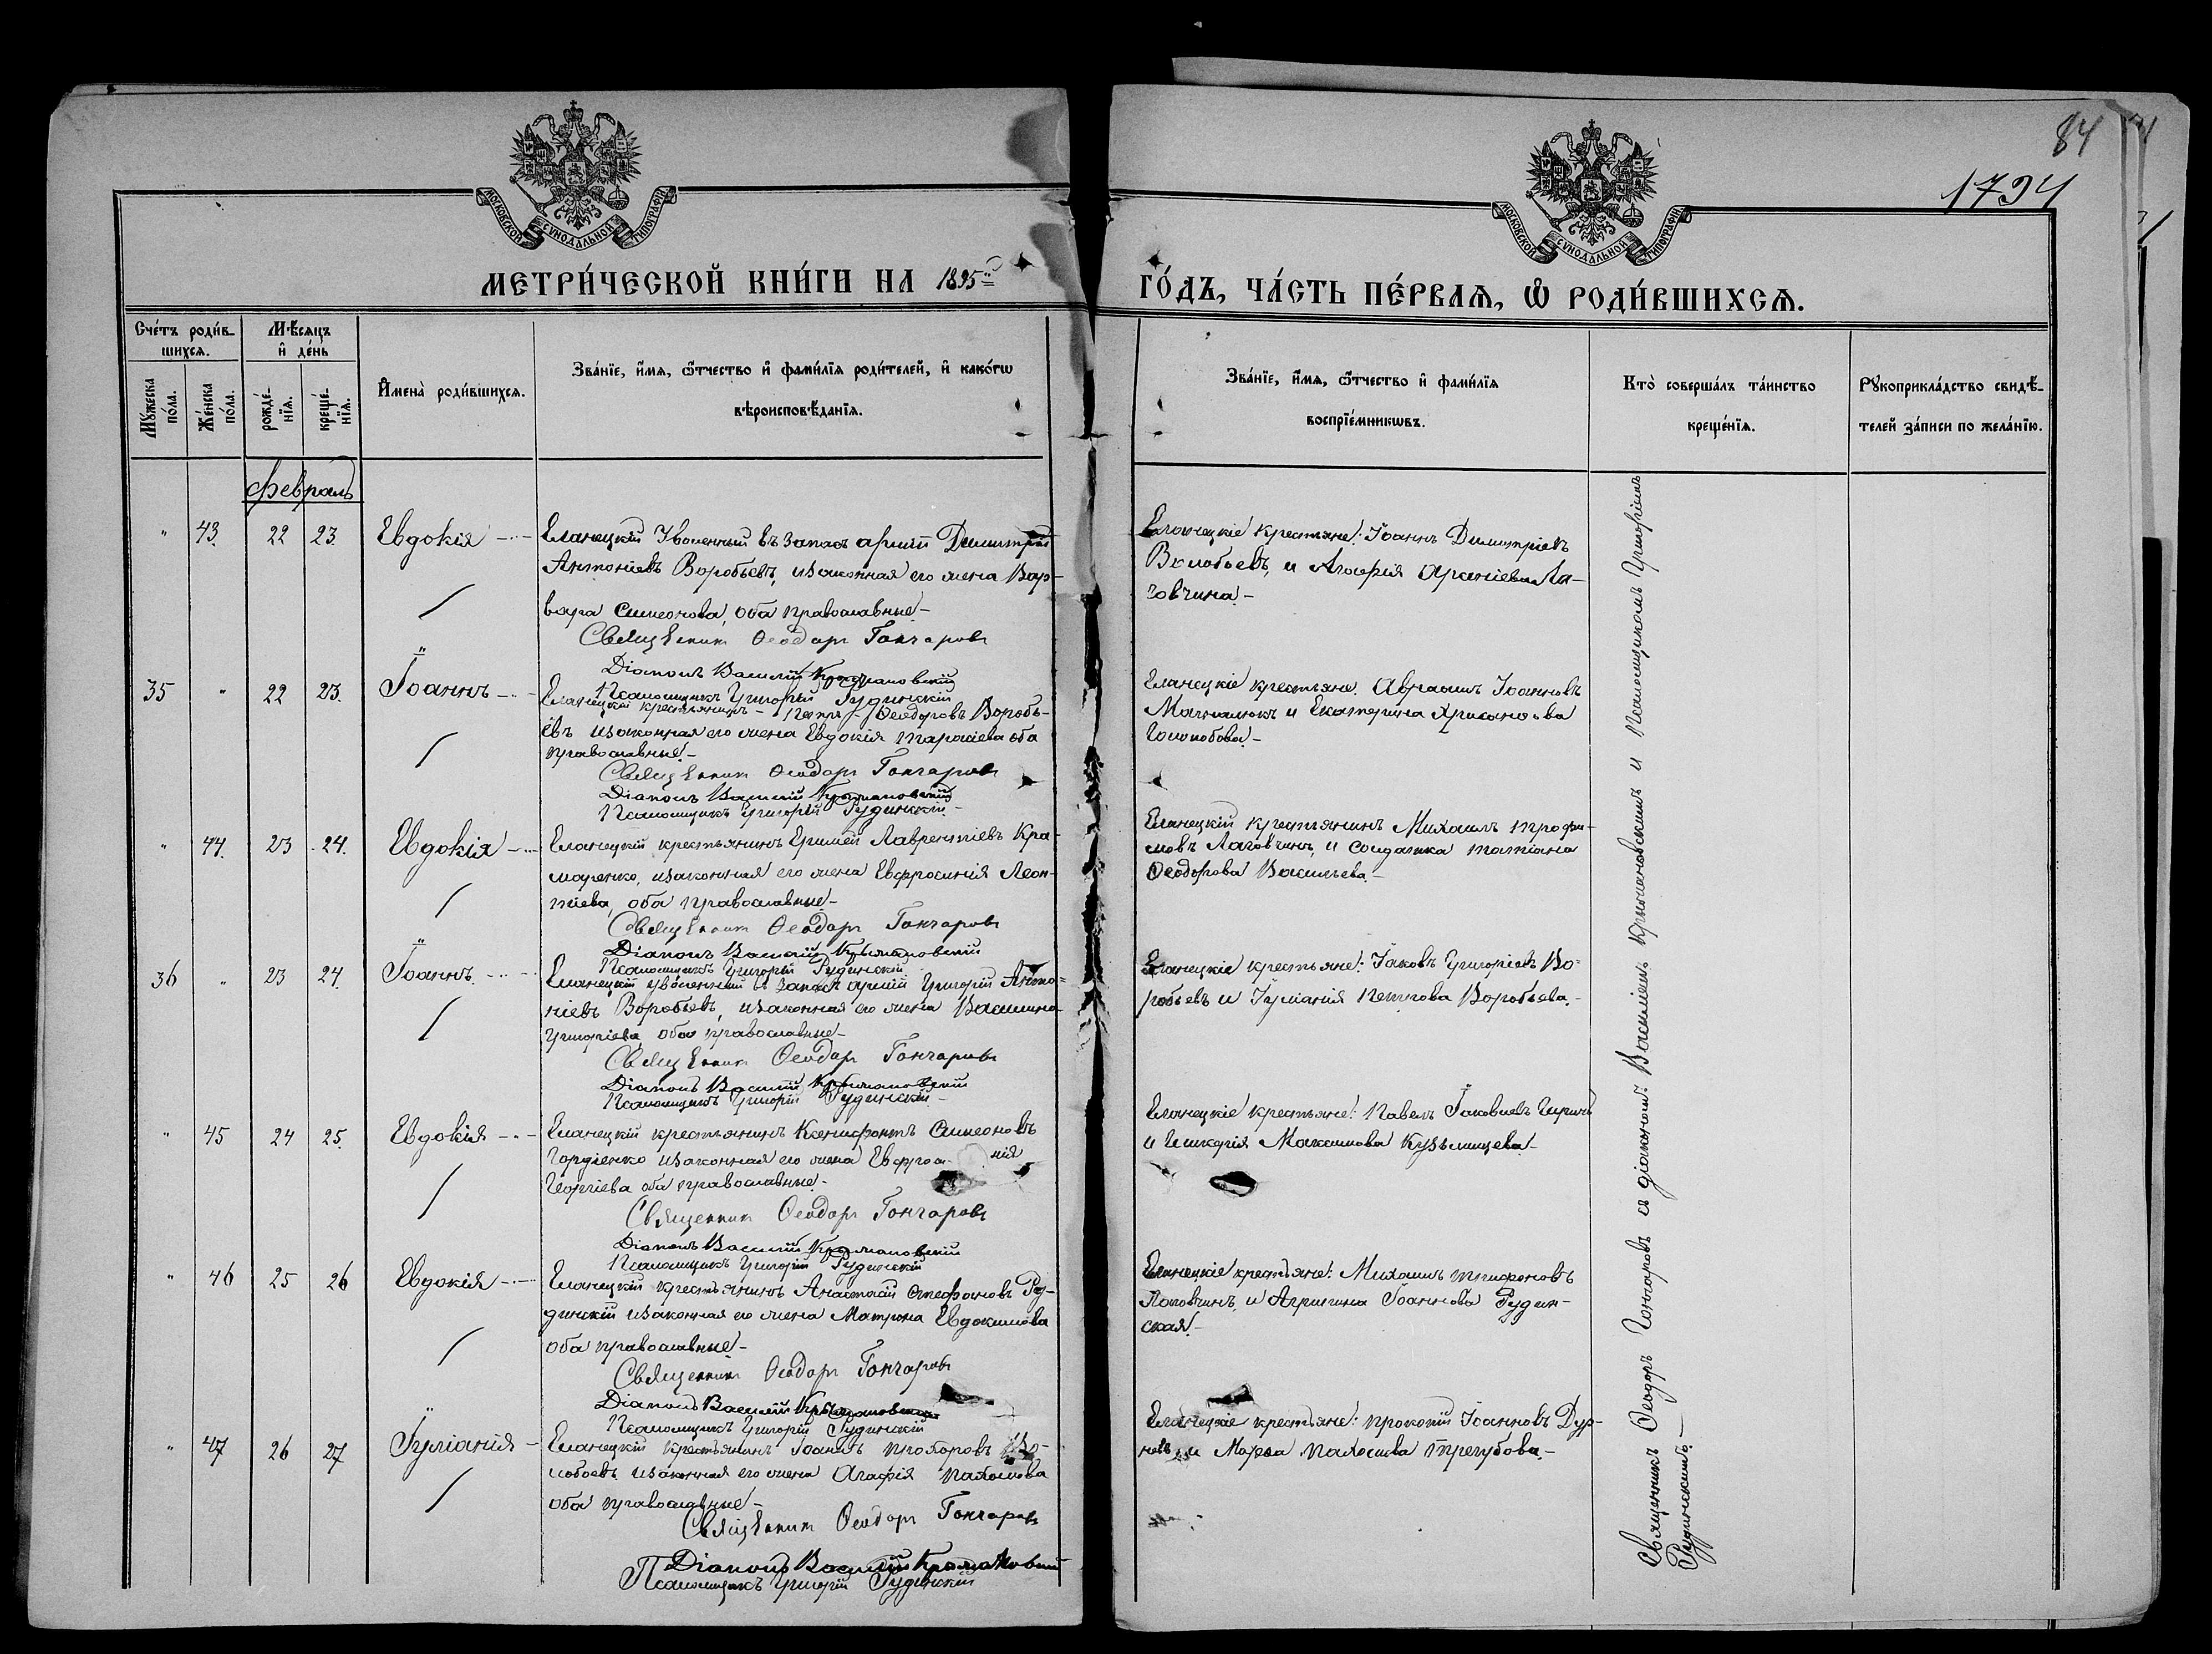 84
1794
МОСКОВСКОЙ СУНОДАЛЬНОЙ ТИПОГРАФІИ
МОСКОВСКОЙ СУНОДАЛЬНОЙ ТИПОГРАФІИ
МЕТРИ́ЧЕСКОЙ КНИ́ГИ НА 1895
ГО́ДЪ, ЧА́СТЬ ПЕ́РВАѦ, Ѿ РОДИ́ВШИХСѦ.
Счéтъ роди́в-
шихсѧ.
Мѣ́сѧцъ
и҆ дéнь
Мꙋ́жеска
по́ла.
Же́нска
по́ла.
рождé-
нїѧ.
крещé-
нїѧ.
И҆мена̀ роди́вшихсѧ.
Зва́нїе, и҆́мѧ, ѻ҆́тчество и҆ фами́лїѧ роди́телей, и҆ како́гѡ
вѣроисповѣ́данїѧ.
Зва́нїе, и҆́мѧ, ѻ҆́тчество и҆ фами́лїѧ
воспрїéмникѡвъ.
Кто̀ соверша́лъ та́инство
крещéнїѧ.
Рꙋкоприкла́дство свидѣ́-
телей за́писи по жела́нїю.
Февраль
" 43. 22 23. Евдокія
Еланецкій Уволенный въ запасъ арміи Димитрій
Антоніевъ Воробьевъ, изаконная его жена Вар-
вара Симеонова, оба православные-
Священник Ѳеодоръ Гончаровъ
Діаконъ Василій Крыжановскій
Псаломщикъ Григорій Рудинскій
Еланецкіе крестьяне: Іоаннъ Димитріевъ
Воробьевъ, и Агафія Ла-
говчина.-
35 " 22 23. Іоаннъ
Еланецкій крестьянинъ - Петръ Ѳеодоровъ Воробь-
евъ изаконная его жена Евдокія Тарасіева оба
православные.-
Священник Ѳеодоръ Гончаровъ
Діаконъ Василій Крыжановскій
Псаломщикъ Григорій Рудинскій-
Еланецкіе крестьяне: Авраамъ Іоанновъ
и Екатерина
" 44. 23 24. Евдокія
Еланецкій крестьянинъ Лаврентіевъ Кра-
маренко, изаконная его жена Евфросинія Леон-
тіева, оба православные-
Священник Ѳеодоръ Гончаровъ
Діаконъ Василій Крыжановскій
Псаломщикъ Григорій Рудинскій
Еланецкій крестьянинъ Михаилъ Трофи-
мовъ Лаговчинъ, и солдатка Татіана
Ѳеодорова Васильева.-
36 " 23 24. Іоаннъ
Еланецкій уволенный въ запасъ арміи Григорій Анто-
ніевъ Воробьевъ, изаконная его жена Василина
Григоріева, оба православные-
Священник Ѳеодоръ Гончаровъ
Діаконъ Василій Крыжановскій
Псаломщикъ Григорій Рудинскій-
Еланецкіе крестьяне: Іаковъ Григоріевъ Во-
робьевъ и Іуліанія Петрова Воробьева.-
" 45 24 25. Евдокія
Еланецкій крестьянинъ Ксенофонтъ Симеоновъ
Гордіенко изаконная его жена Евфроси нія
Георгіева оба православные-
Священник Ѳеодоръ Гончаровъ
Діаконъ Василій Крыжановскій
Псаломщикъ Григорій Рудинскій
Еланецкіе крестьяне: Павелъ Іаковлевъ
и Гликерія Максимова Кузьмицева-
" 46 25 26 Евдокія
Еланецкій крестьянинъ Анастасій Стефановъ Ру-
динскій изаконная его жена Матрона Евдокимова
оба православные-
Священник Ѳеодоръ Гончаровъ
Діаконъ Василій Крыжановскій
Псаломщикъ Григорій Рудинскій
Еланецкіе крестьяне: Михаилъ
Лаговчинъ, и Агрипина Іоаннова Рудин-
ская.-
" 47 26 27 Іуліанія
Еланецкій крестьянинъ Іоаннъ Прохоровъ
изаконная его жена Агафія Пахомова
оба православные-
Священник Ѳеодоръ Гончаровъ
Діаконъ Василій Крыжановскій
Псаломщикъ Григорій Рудинскій
Еланецкіе крестьяне: Прокопій Іоанновъ Дур-
невъ и Марѳа Трегубова.-
Священникъ Ѳеодоръ Гончаровъ съ діакономъ Василіемъ Крыжановскимъ и Псаломщикомъ Григоріемъ
Рудинскимъ.-